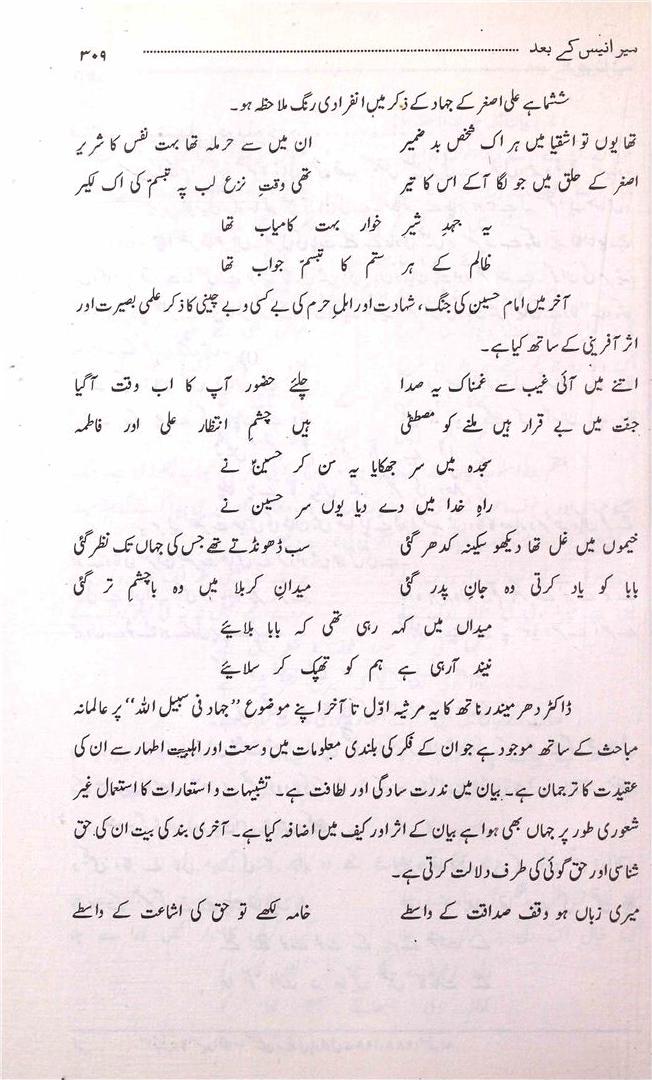 میر انیس کے بعد ........................................................ ۳۰۹
ششماہے علی اصغر کے جہاد کے ذکر میں انفرادی رنگ ملاحظہ ہو۔
تھا یوں تو اشقیا میں ہر اک شخص بد ضمیر ان میں سے حرملہ تھا بہت نفس کا شریر
اصغر کے حلق میں جو لگا آکے اس کا تیر تھی وقتِ نزع لب پہ تبسّم کی اک لکیر
یہ جہدِ شیر خوار بہت کامیاب تھا
ظالم کے ہر ستم کا تبسّم جواب تھا
آخر میں امام حسین کی جنگ، شہادت اور اہلِ حرم کی بے کسی و بے چینی کا ذکر علمی بصیرت اور
اثر آفرینی کے ساتھ کیا ہے۔
اتنے میں آئی غیب سے غمناک یہ صدا چلئے حضور آپ کا اب وقت آگیا
جنّت میں بے قرار ہیں ملنے کو مصطفٰی ہیں چشمِ انتظار علی اور فاطمہ
سجدہ میں سر جھکایا یہ سن کر حسینؑ نے
راہِ خدا میں دے دیا یوں سر حسین نے
خیموں میں غل تھا دیکھو سکینہ کدھر گئی سب ڈھونڈتے تھے جس کی جہاں تک نظر گئی
بابا کو یاد کرتی وہ جانِ پدر گئی میدانِ کربلا میں وہ باچشمِ تر گئی
میداں میں کہہ رہی تھی کہ بابا بلائیے
نیند آرہی ہے ہم کو تھپک کر سلائیے
ڈاکٹر دھرمیندر ناتھ کا یہ مرثیہ اوّل تا آخر اپنے موضوع ’’جہاد فی سبیل اللہ‘‘ پر عالمانہ
مباحث کے ساتھ موجود ہے جو ان کے فکر کی بلندی معلومات میں وسعت اور اہلبیت اطہار سے ان کی
عقیدت کا ترجمان ہے۔ بیان میں ندرت سادگی اور لطافت ہے۔ تشبیہات و استعارات کا استعمال غیر
شعوری طور پر جہاں بھی ہوا ہے بیان کے اثر اور کیف میں اضافہ کیا ہے۔ آخری بند کی بیت ان کی حق
شناسی اور حق گوئی کی طرف دلالت کرتی ہے۔
میری زباں ہو وقف صداقت کے واسطے خامہ لکھے تو حق کی اشاعت کے واسطے